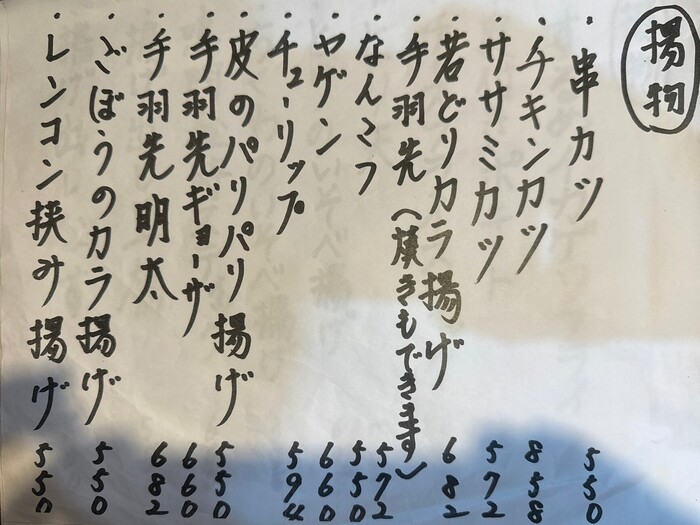 揚物
・串カツ 550
・チキンカツ 858
・ササミカツ 572
・若どりカラ揚げ 682
・手羽先(焼きもできます) 572
・なんこつ 550
・ヤゲン 660
・チューリップ 594
・皮のパリパリ揚げ 550
・手羽先ギョーザ 660
・手羽先明太 682
・ごぼうのカラ揚げ 550
・レンコン挟み揚げ 550